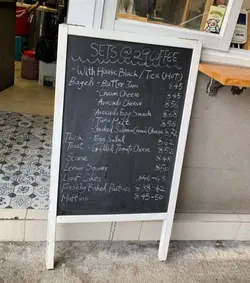 SETS @ 29 COFFEE
- With House Black / Tea (Hot)
Bagels - Butter Jam $45
- Cream Cheese $48
- Avocado Cheese $56
- Avocado Egg Smash $68
- Tuna Melt $58
- Smoked Salmon Cream Cheese $72
Thick - Egg Salad $52
Toast - Grilled Tomato Cheese
Scone $48
Lemon Square $50
Loaf Cakes $46-48
Freshly Baked Pastries $38-42
Muffins $45-50